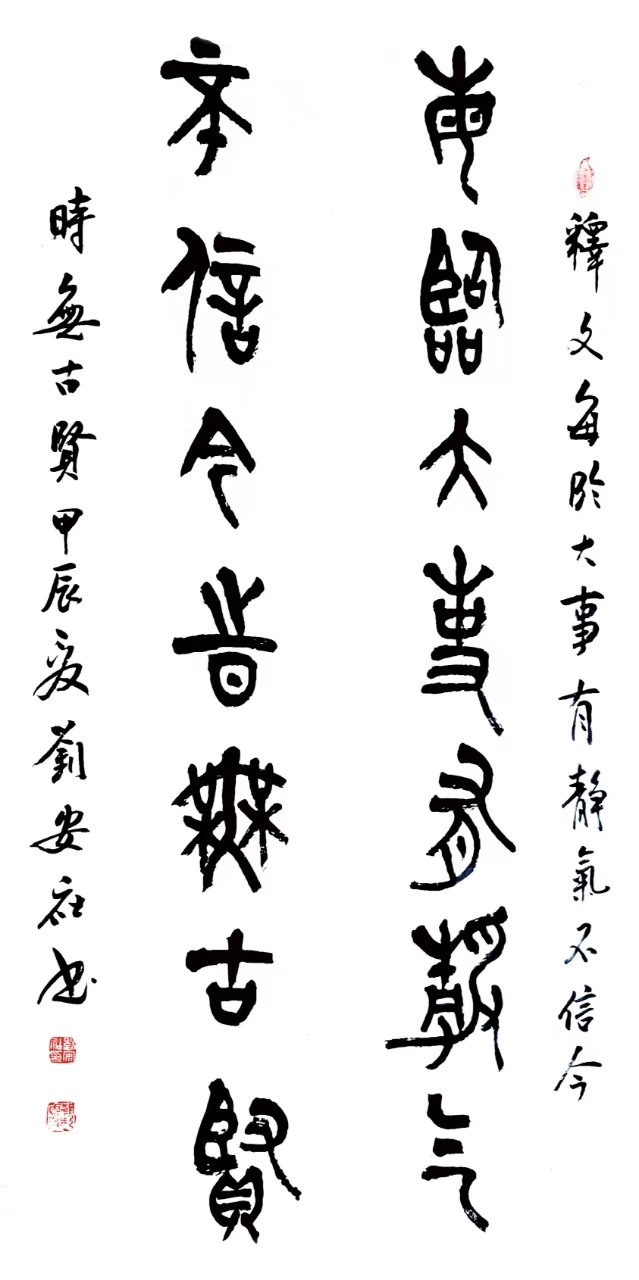 釋文每臨大事有靜氣不信今
每臨大事有靜气
不信今時無古賢
時無古賢甲辰夏劉安書